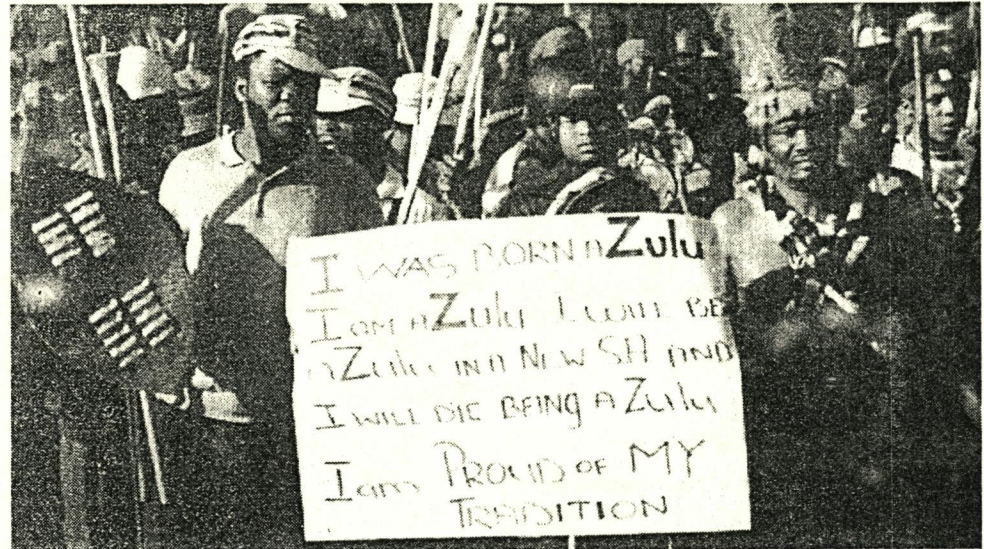 I WAS BORN A Zulu
I am A Zulu I will BE
A Zulu IN A NEW SA AND
I WILL DIE BEING A Zulu
I am PROUD OF MY
TRADITION